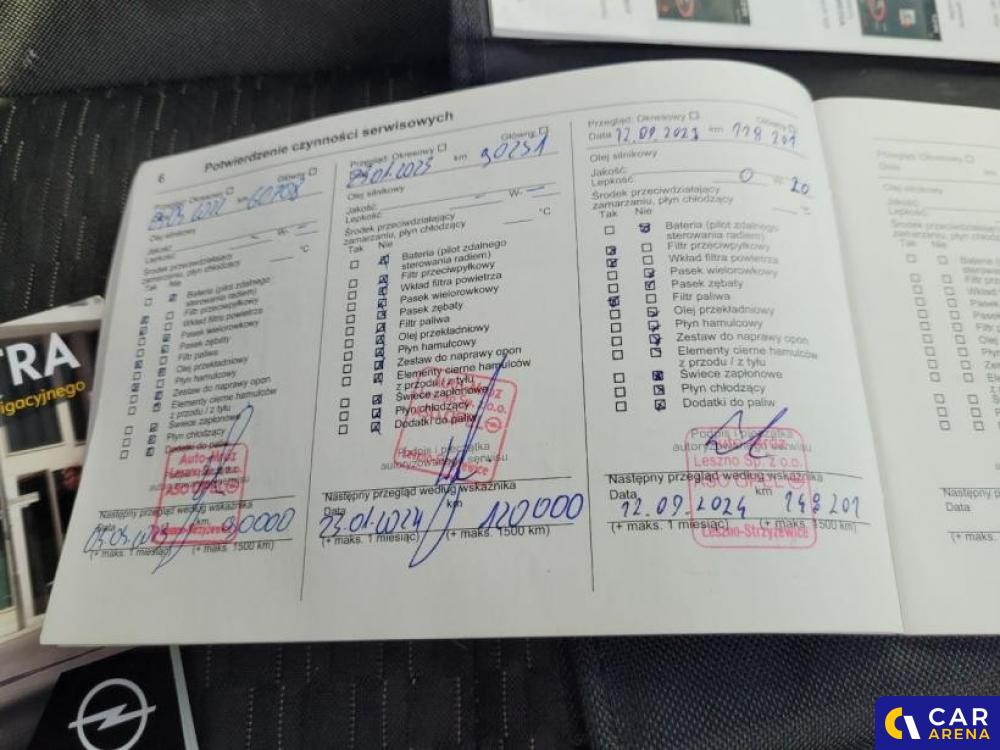 6 Potwierdzenie czynności serwisowych
Przegląd: Okresowy ☐ Główny: ☐
km 60708
Olej silnikowy
Jakość:
Lepkość: – W- –
Środek przeciwdziałający
zamarzaniu, płyn chłodzący: °C
Tak Nie
Bateria (pilot zdalnego
sterowania radiem)
Filtr przeciwpyłkowy
Wkład filtra powietrza
Pasek wielorowkowy
Pasek zębaty
Filtr paliwa
Olej przekładniowy
Płyn hamulcowy
Zestaw do naprawy opon
Elementy cierne hamulców
z przodu / z tyłu
Świece zapłonowe
Płyn chłodzący
Dodatki do paliw
Auto-Mroz
Leszno Sp. z o.o.
ASO OPEL
Leszno-Strzyżewice
Następny przegląd według wskaźnika
Data km
90000
(+ maks. 1 miesiąc) (+ maks. 1500 km)
Przegląd: Okresowy ☐ Główny: ☐
23.01.2023 km 90251
Olej silnikowy
Jakość:
Lepkość: – W- –
Środek przeciwdziałający
zamarzaniu, płyn chłodzący: °C
Tak Nie
Bateria (pilot zdalnego
sterowania radiem)
Filtr przeciwpyłkowy
Wkład filtra powietrza
Pasek wielorowkowy
Pasek zębaty
Filtr paliwa
Olej przekładniowy
Płyn hamulcowy
Zestaw do naprawy opon
Elementy cierne hamulców
z przodu / z tyłu
Świece zapłonowe
Płyn chłodzący
Dodatki do paliw
Podpis i pieczątka
autoryzowanego serwisu
Leszno-Strzyżewice
Następny przegląd według wskaźnika
Data km
23.01.2024 120000
(+ maks. 1 miesiąc) (+ maks. 1500 km)
Przegląd: Okresowy ☐ Główny: ☐
Data 12.09.2023 km 118201
Olej silnikowy
Jakość:
Lepkość: 0 W- 20
Środek przeciwdziałający
zamarzaniu, płyn chłodzący: °C
Tak Nie
Bateria (pilot zdalnego
sterowania radiem)
Filtr przeciwpyłkowy
Wkład filtra powietrza
Pasek wielorowkowy
Pasek zębaty
Filtr paliwa
Olej przekładniowy
Płyn hamulcowy
Zestaw do naprawy opon
Elementy cierne hamulców
z przodu / z tyłu
Świece zapłonowe
Płyn chłodzący
Dodatki do paliw
Podpis i pieczątka
autoryzowanego serwisu
Auto-Mroz
Leszno Sp. z o.o.
ASO OPEL
Leszno-Strzyżewice
Następny przegląd według wskaźnika
Data km
12.09.2024 148201
(+ maks. 1 miesiąc) (+ maks. 1500 km)
Przegląd: Okresowy ☐
Data
Olej silnikowy
Jakość:
Lepkość:
Tak Nie
Następny
Data
(+ maks.
TRA
igacyjnego
CAR
ARENA